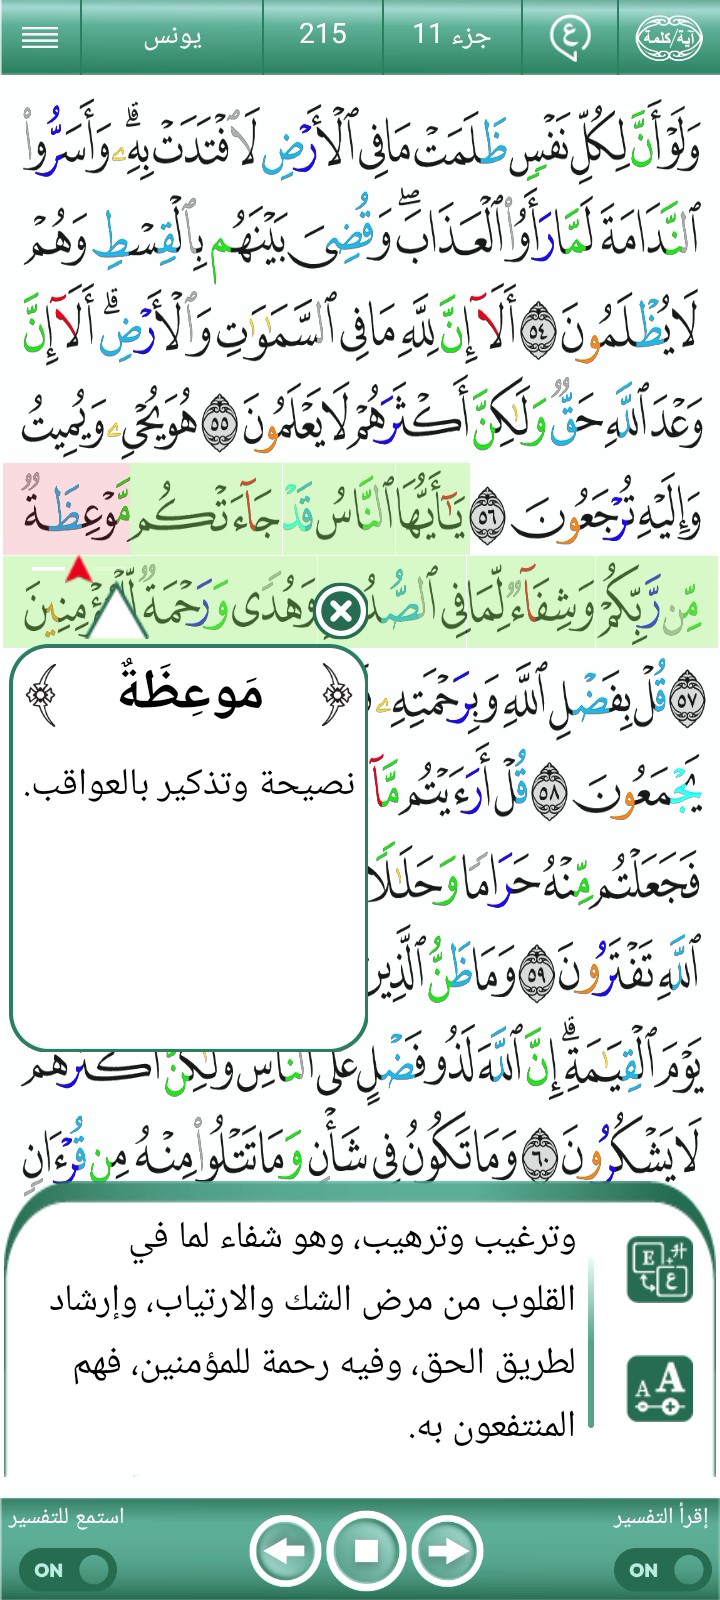 آية/كلمة
ع
جزء 11
215
يونس
وَلَوْ أَنَّ لِكُلِّ نَفْسٍ ظَلَمَتْ مَا فِى ٱلْأَرْضِ لَٱفْتَدَتْ بِهِۦ ۗ وَأَسَرُّوا۟
ٱلنَّدَامَةَ لَمَّا رَأَوُا۟ ٱلْعَذَابَ ۖ وَقُضِىَ بَيْنَهُم بِٱلْقِسْطِ ۚ وَهُمْ
لَا يُظْلَمُونَ ٥٤ أَلَآ إِنَّ لِلَّهِ مَا فِى ٱلسَّمَٰوَٰتِ وَٱلْأَرْضِ ۗ أَلَآ إِنَّ
وَعْدَ ٱللَّهِ حَقٌّ وَلَٰكِنَّ أَكْثَرَهُمْ لَا يَعْلَمُونَ ٥٥ هُوَ يُحْىِۦ وَيُمِيتُ
وَإِلَيْهِ تُرْجَعُونَ ٥٦ يَٰٓأَيُّهَا ٱلنَّاسُ قَدْ جَآءَتْكُم مَّوْعِظَةٌ
مِّن رَّبِّكُمْ وَشِفَآءٌ لِّمَا فِى ٱلصُّدُ وَهُدًى وَرَحْمَةٌ لِّلْمُؤْمِنِينَ
٥٧ قُلْ بِفَضْلِ ٱللَّهِ وَبِرَحْمَتِهِۦ
يَجْمَعُونَ ٥٨ قُلْ أَرَءَيْتُم مَّآ
فَجَعَلْتُم مِّنْهُ حَرَامًا وَحَلَٰلًا
ٱللَّهِ تَفْتَرُونَ ٥٩ وَمَا ظَنُّ ٱلَّذِينَ
يَوْمَ ٱلْقِيَٰمَةِ ۗ إِنَّ ٱللَّهَ لَذُو فَضْلٍ عَلَى ٱلنَّاسِ وَلَٰكِنَّ أَكْثَرَهُمْ
لَا يَشْكُرُونَ ٦٠ وَمَا تَكُونُ فِى شَأْنٍ وَمَا تَتْلُوا۟ مِنْهُ مِن قُرْءَانٍ
مَوعِظَةٌ
نصيحة وتذكير بالعواقب.
وترغيب وترهيب، وهو شفاء لما في
القلوب من مرض الشك والارتياب، وإرشاد
لطريق الحق، وفيه رحمة للمؤمنين، فهم
المنتفعون به.
E ع
A A
إقرأ التفسير
ON
استمع للتفسير
ON